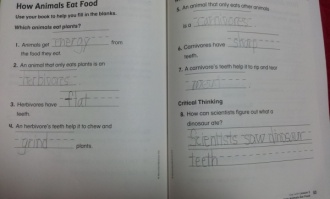 How Animals Eat Food
Use your book to help you fill in the blanks.
Which animals eat plants?
1. Animals get energy from
the food they eat.
2. An animal that only eats plants is an
herbivore
3. Herbivores have flat
teeth.
4. An herbivore's teeth help it to chew and
grind plants.
5. An animal that only eats other animals
is a carnivore
6. Carnivores have sharp
teeth.
7. A carnivore's teeth help it to rip and tear
Critical Thinking
8. How can scientists figure out what a
dinosaur ate?
Scientists saw dinosaur
teeth